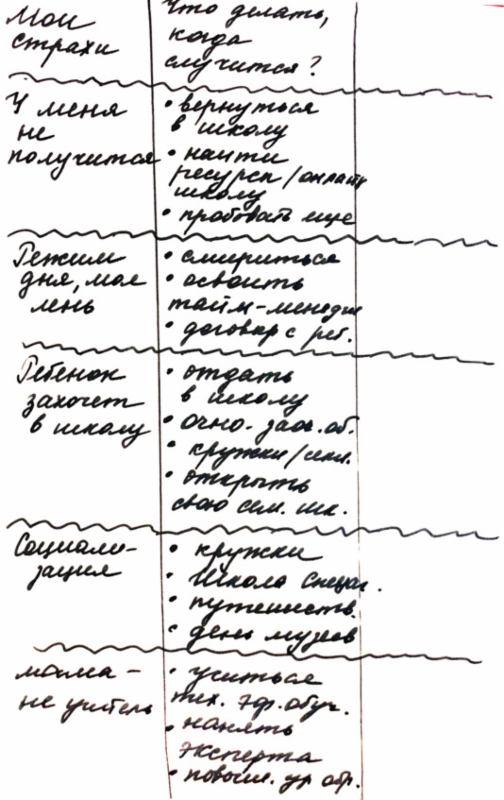 Мои
страхи
Что делать,
когда
случится?
У меня
не
получится
• вернуться
в школу
• найти
ресурсы / онлайн
школу
• пробовать еще
Режим
дня, моя
лень
• смириться
• освоить
тайм-менедж
• договор с реб.
Ребенок
захочет
в школу
• отдать
в школу
• очно-заоч. об.
• кружки/секц.
• открыть
свою сем. шк.
Социали-
зация
• кружки
• Школа
• путешеств.
• день музеев
мама -
не учитель
• учиться
тех. эф. обуч.
• нанять
эксперта
• повыш. ур обр.